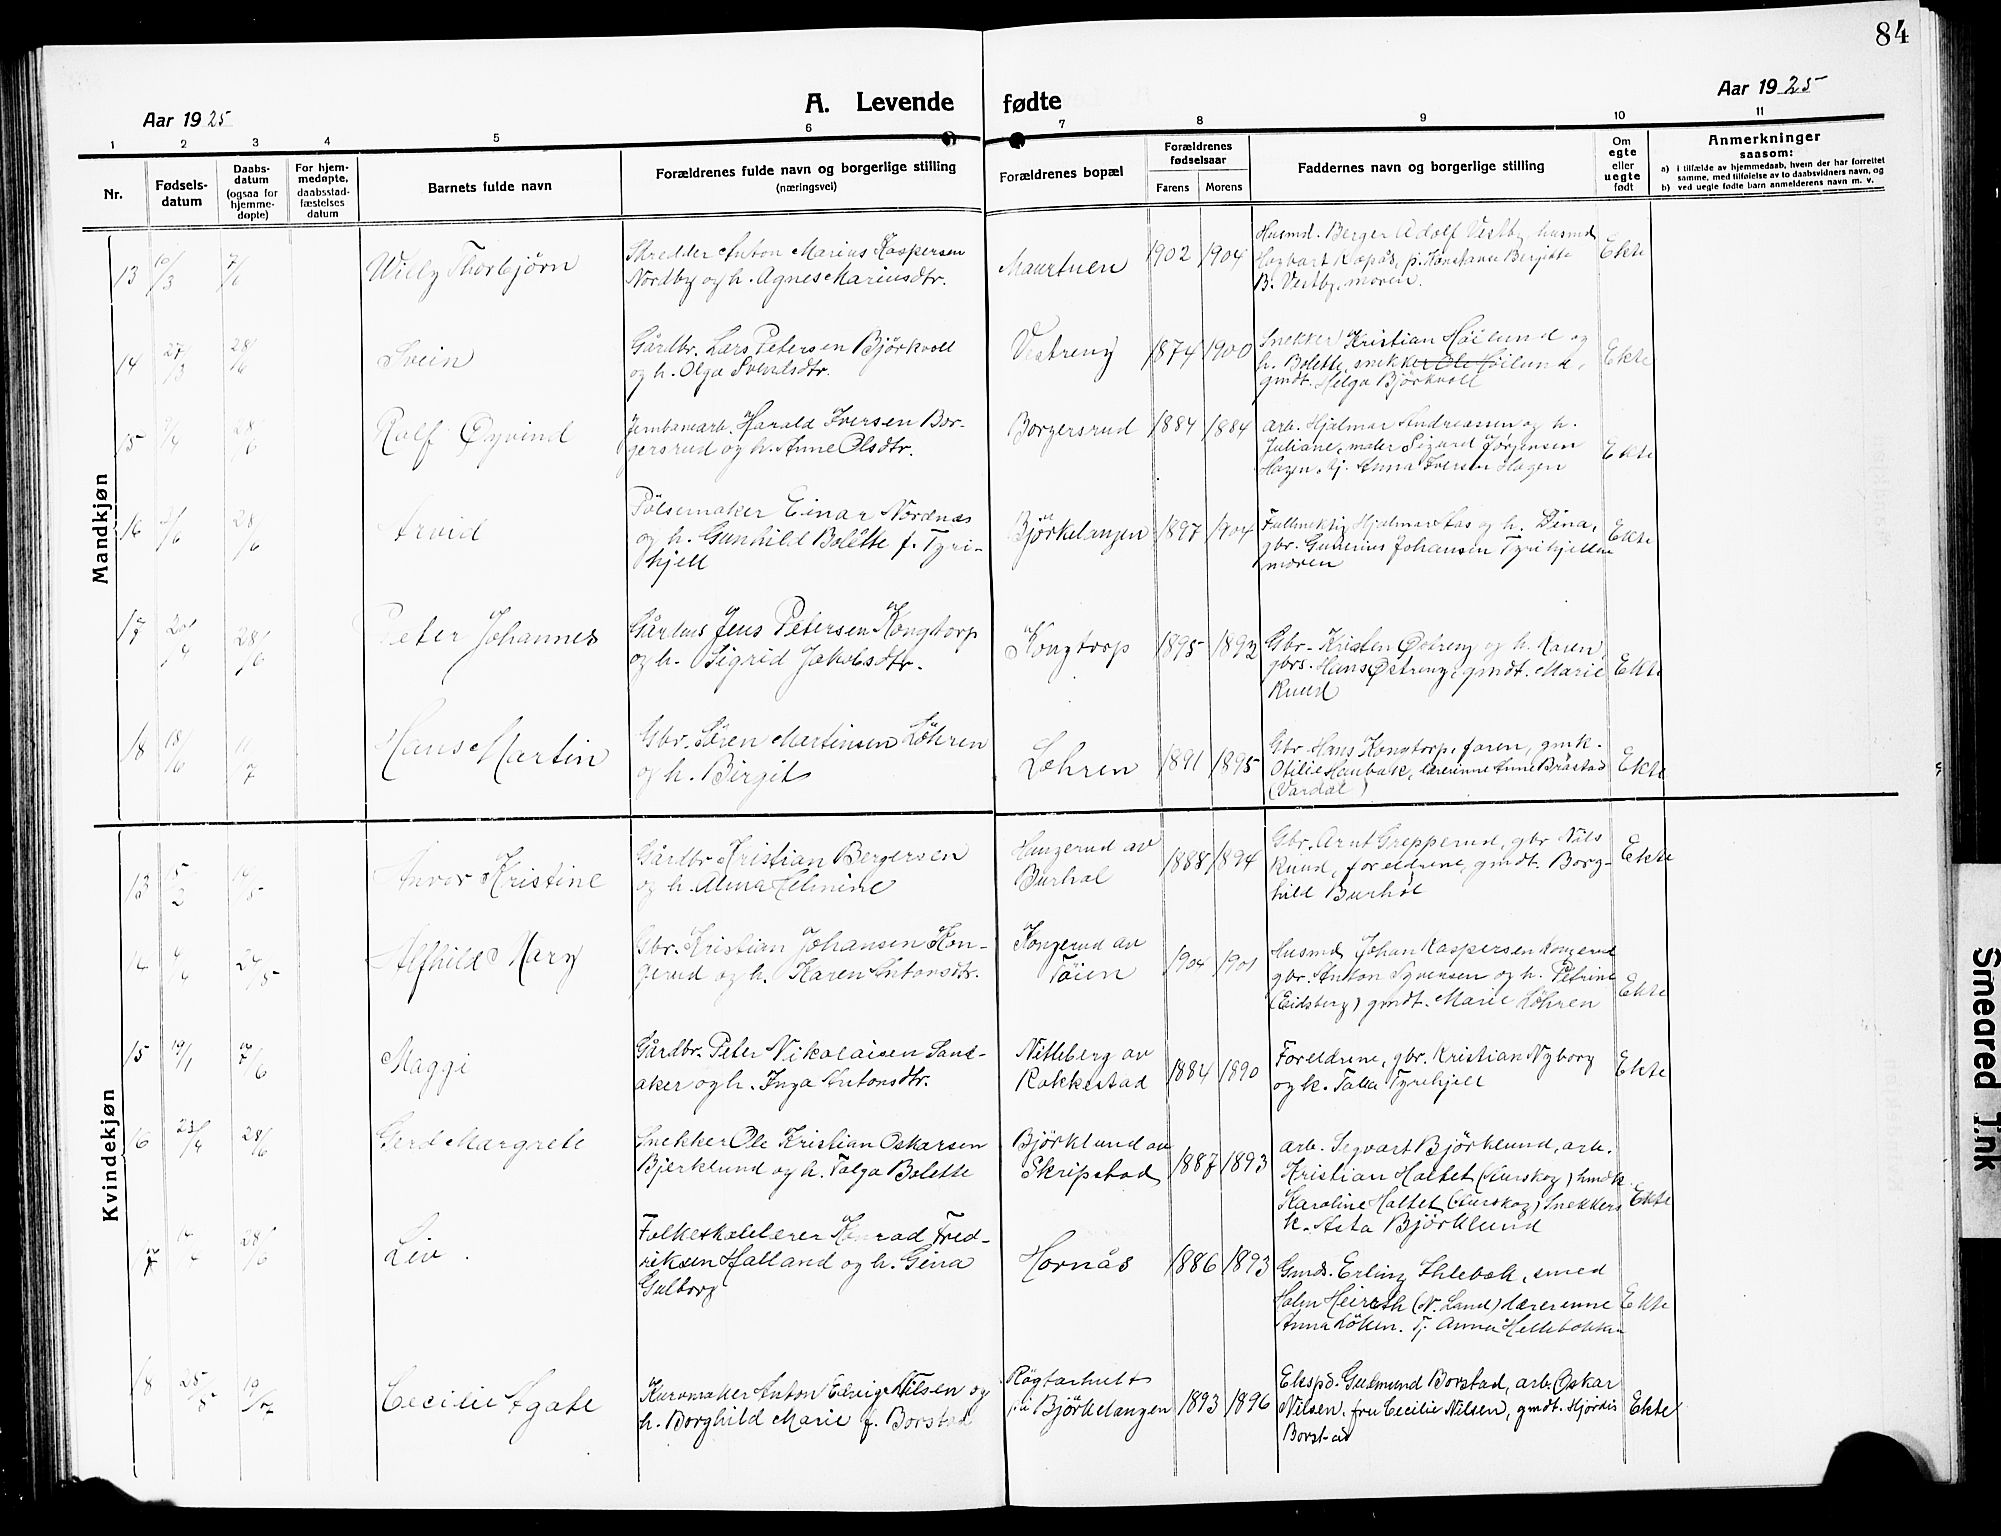 84
Aar 1925
A. Levende fødte
Aar 1925
1 2 3 4 5 6 7 8 9 10 11
Nr.
Fødsels-
datum
Daabs-
datum
(ogsaa for
hjemme-
døpte)
For hjem-
medøpte,
daabsstad-
fæstelses
datum
Barnets fulde navn
Forældrenes fulde navn og borgerlige stilling
(næringsvei)
Forældrenes bopæl
Forældrenes
fødselsaar
Farens Morens
Faddernes navn og borgerlige stilling
Om
egte
eller
uegte
født
Anmerkninger
saasom:
a) i tilfælde av hjemmedaab, hvem der har forrettet
samme, med tilføielse av to daabsvidners navn, og
b) ved uegte fødte barn anmelderens navn m. v.
Mandkjøn
13
Willy Thorbjørn
Skredder Anton Marius Kaspersen
Nordby og h. Agnes Mariusdtr.
Maurtuen
1902 1904
Husmd. Berger Adolf Vestby, husmd
B. Vestby, moren.
Ekte
14 27/3 28/6
Svein
Gårdbr. Lars Petersen Björkvoll
og h. Olga Svendsdtr.
Vestreng
1874 1900
Snekker Kristian Höilund og
h. Bolette, snekker Ole Höilund,
gmdt. Helga Björkvoll
Ekte
15 28/6
Rolf Øyvind
Jernbanearb. Harald Iversen Bor-
gersrud og h. Anne Olsdtr.
Borgersrud
1884 1884
arb. Hjalmar Andreassen og h.
Juliane, maler Sigurd Jørgensen
Hagen, pj. Anna Iversen Hagen
Ekte
16 28/6
Arvid
Pölsemaker Einar Nordnæs
og h. Gunhild Bolette f. Tyri-
hjell
Björkelangen
1897 1904
Fullmektig Hjalmar Aas og h. Dina,
gbr. Gudenius Johansen Tyrihjellen
moren
Ekte
17 28/6
Peter Johannes
Gårdbrs Jens Petersen Kongtorp
og h. Sigrid Jakobsdtr.
Kongtorp
1895 1892
Gbr. Kristen Østreng og h. Karen,
gbrs. Hans Østreng, gmdt. Marie
Ruud
Ekte
18 18/6
Hans Martin
Gbr. Sören Martinsen Löhren
og h. Birgit
Løhren
1891 1895
Gbr. Hans Kongtorp, faren, gmk.
Otilie Haubak, lærerinne Anne Bråstad
(Vardal)
Ekte
Kvindekjøn
13 5/2
Anvor Kristine
Gårdbr. Kristian Bergersen
og h. Alma Helmine
Haugerud av
Burhol
1888 1894
Gbr. Arnt Grepperud, gbr. Nils
Ruud, foreldrene, gmdt. Borg-
hild Burhol
Ekte
14
Alfhild Mary
Gbr. Kristian Johansen Kon-
gerud og h. Karen Antonsdtr.
Kongerud av
Töien
1904 1901
Husmd. Johan Kaspersen Kongerud
gbr. Anton Syversen og h. Petrine
(Eidsberg) gmdt. Marie Löhren
Ekte
15 19/1
Maggi
Gårdbr. Peter Nikolaisen Sand-
aker og h. Inga Antonsdtr.
Nitteberg av
Rakkestad
1884 1890
Foreldrene, gbr. Kristian Nyborg
og k. Talla Tyrihjell
Ekte
16 23/4 28/6
Gerd Margrete
Snekker Ole Kristian Oskarsen
Bjerklund og h. Valga Bolette
Björklund av
Skripstad
1887 1893
arb. Sigvart Björklund, arb.
Kristian Holtet (Aurskog) hmdk.
Karoline Holtet (Aurskog) Snekkers
k. Asta Björklund
Ekte
17 28/6
Liv.
Folkeskolelærer Konrad Fred-
riksen Halland og h. Gina
Gulborg
Hornås
1886 1893
Gmds. Erling Ihlebæk, smed
(N. Land) lærerinne
Anna Löken. Tj. Anna Hellebækken
Ekte
18 19/7
Cecilie Agate
Kurvmaker Anton Elvig Nilsen og
h. Borghild Marie f. Borstad
Røgtarhult
på Björkelangen
1893 1896
Eksp. Gudmund Borstad, arb. Oskar
Nilsen, fru Cecilie Nilsen, gmdt. Hjördis
Borstad
Ekte
Smeared Ink